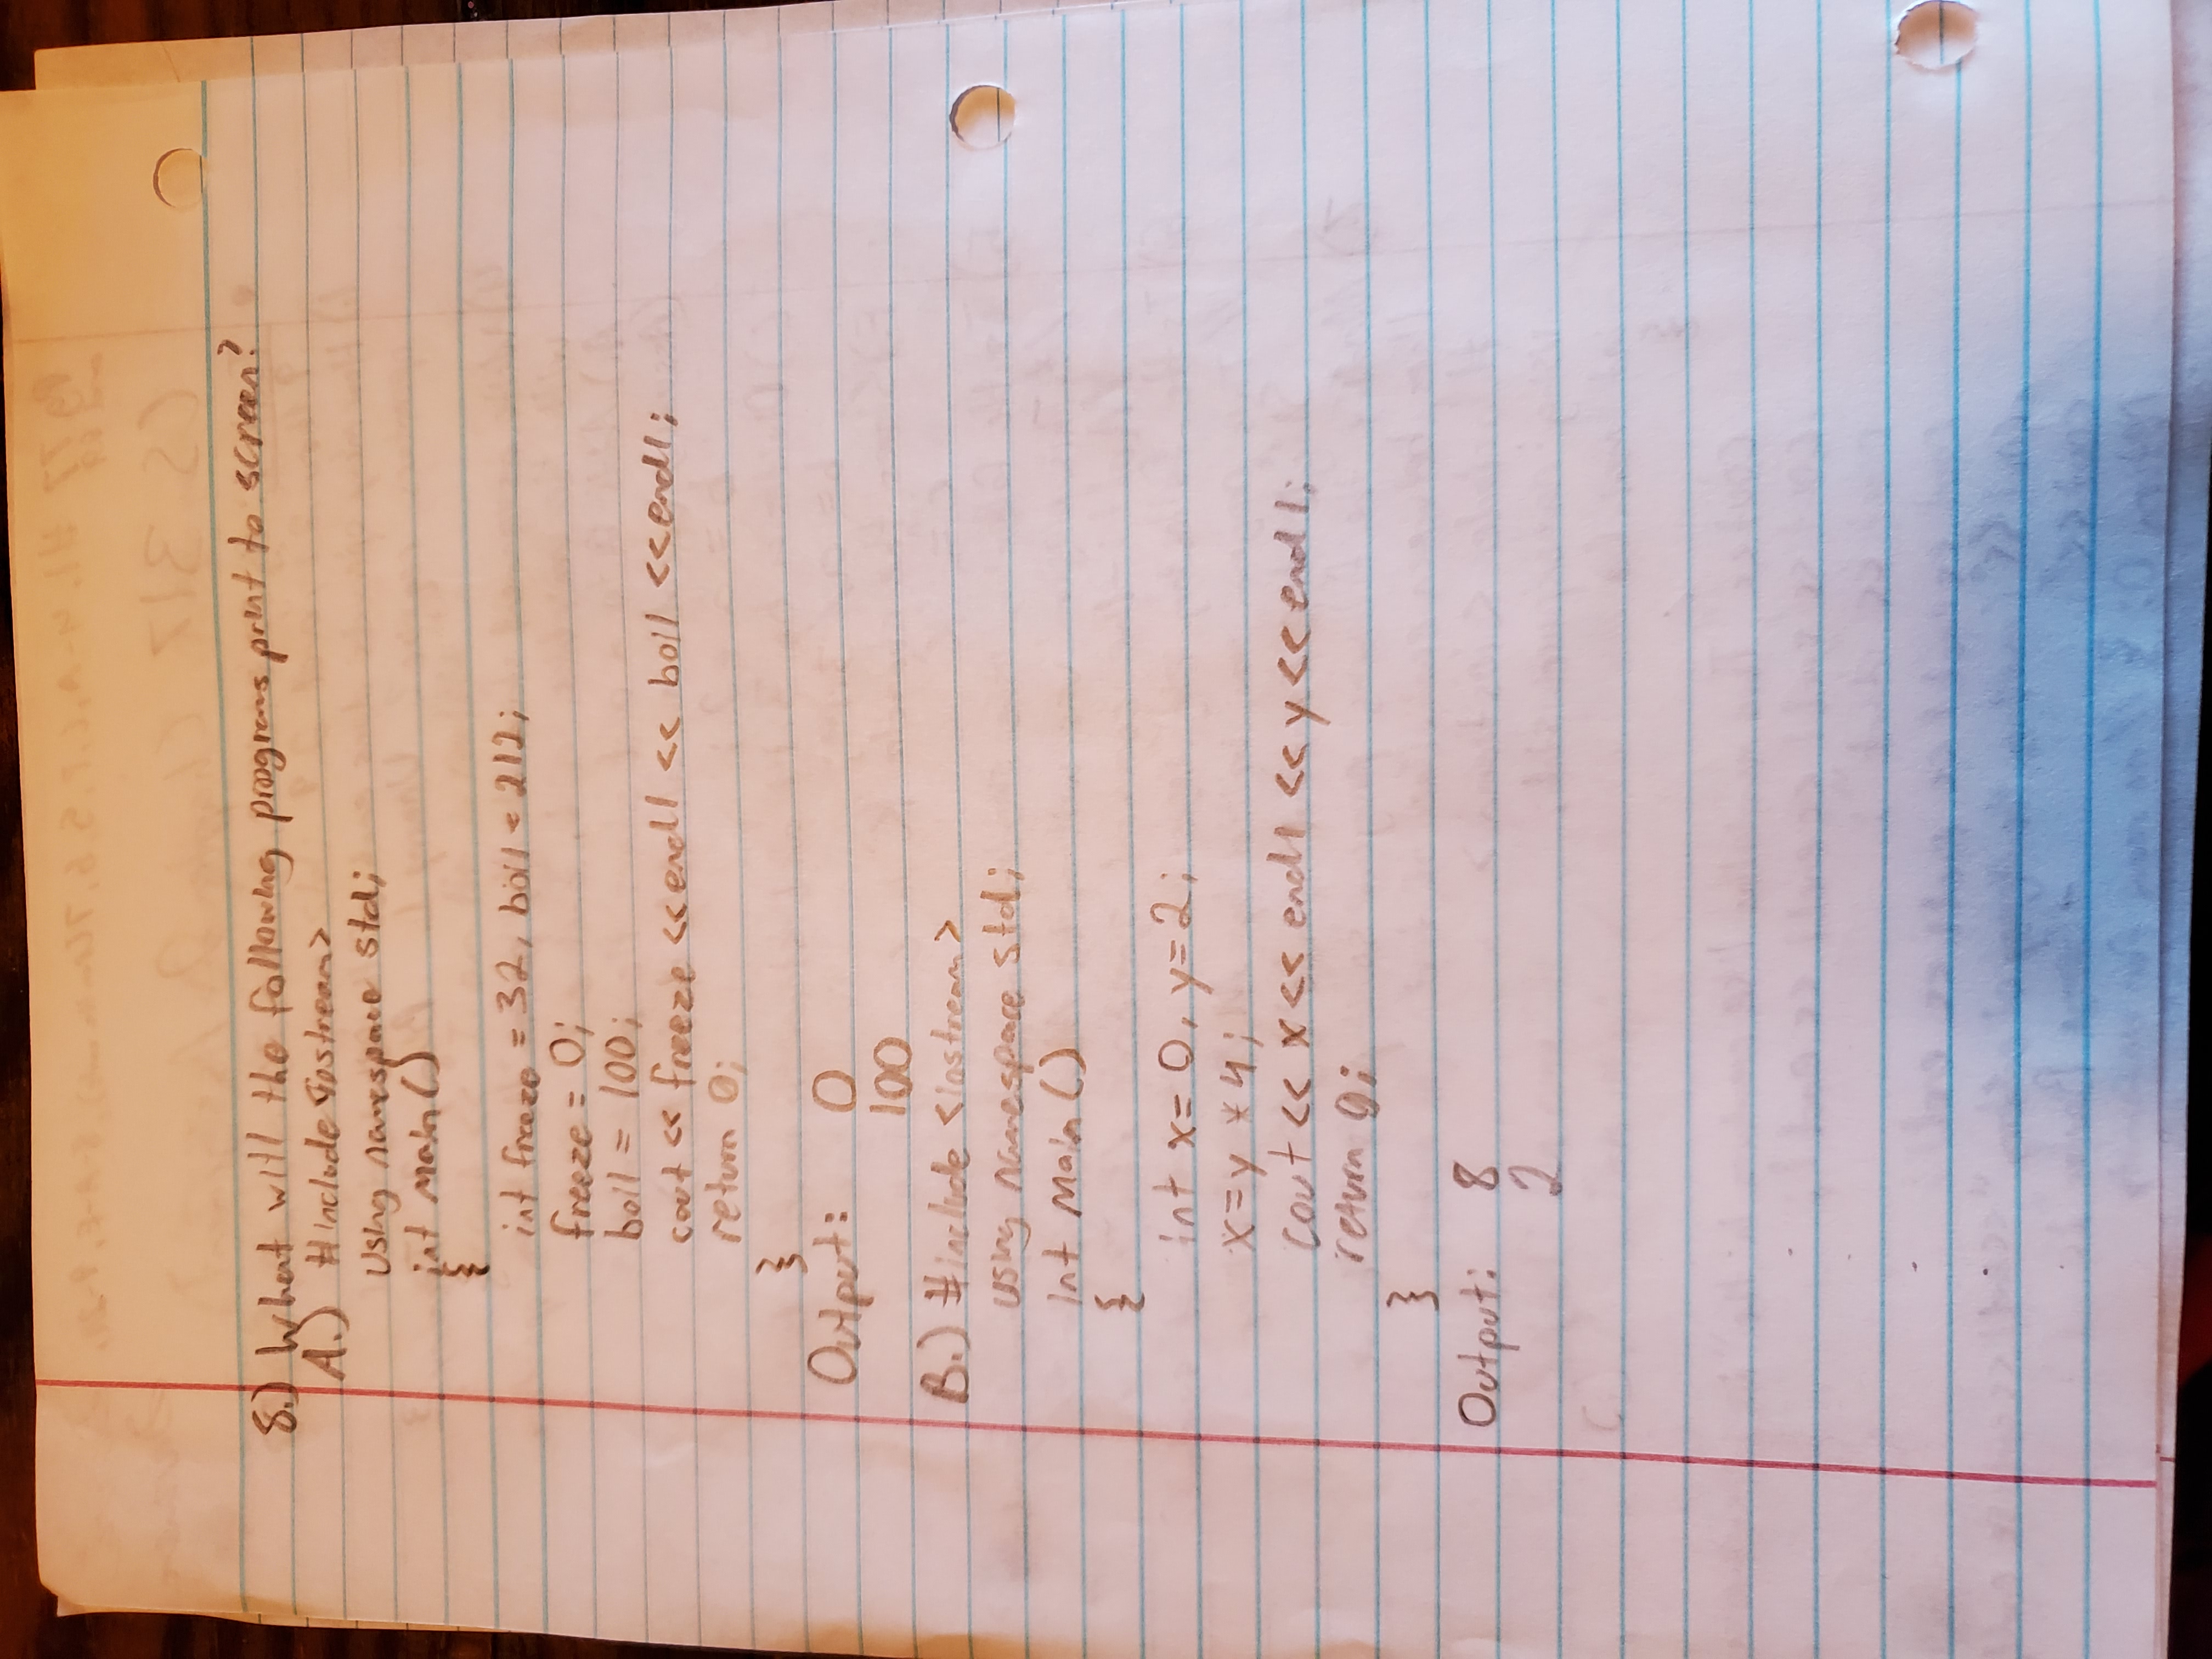 8.) What will the following programs print to screen?
A.) #include <iostream>
using namespace std;
int main()
{
int freeze = 32, boil = 212;
freeze = 0;
boil = 100;
cout << freeze << endl << boil << endl;
return 0;
}
Output: 0
100
B.) #include <iostream>
using namespace std;
int main()
{
int x = 0, y = 2;
x = y * 4;
cout << x << endl << y << endl;
return 0;
}
Output: 8
2